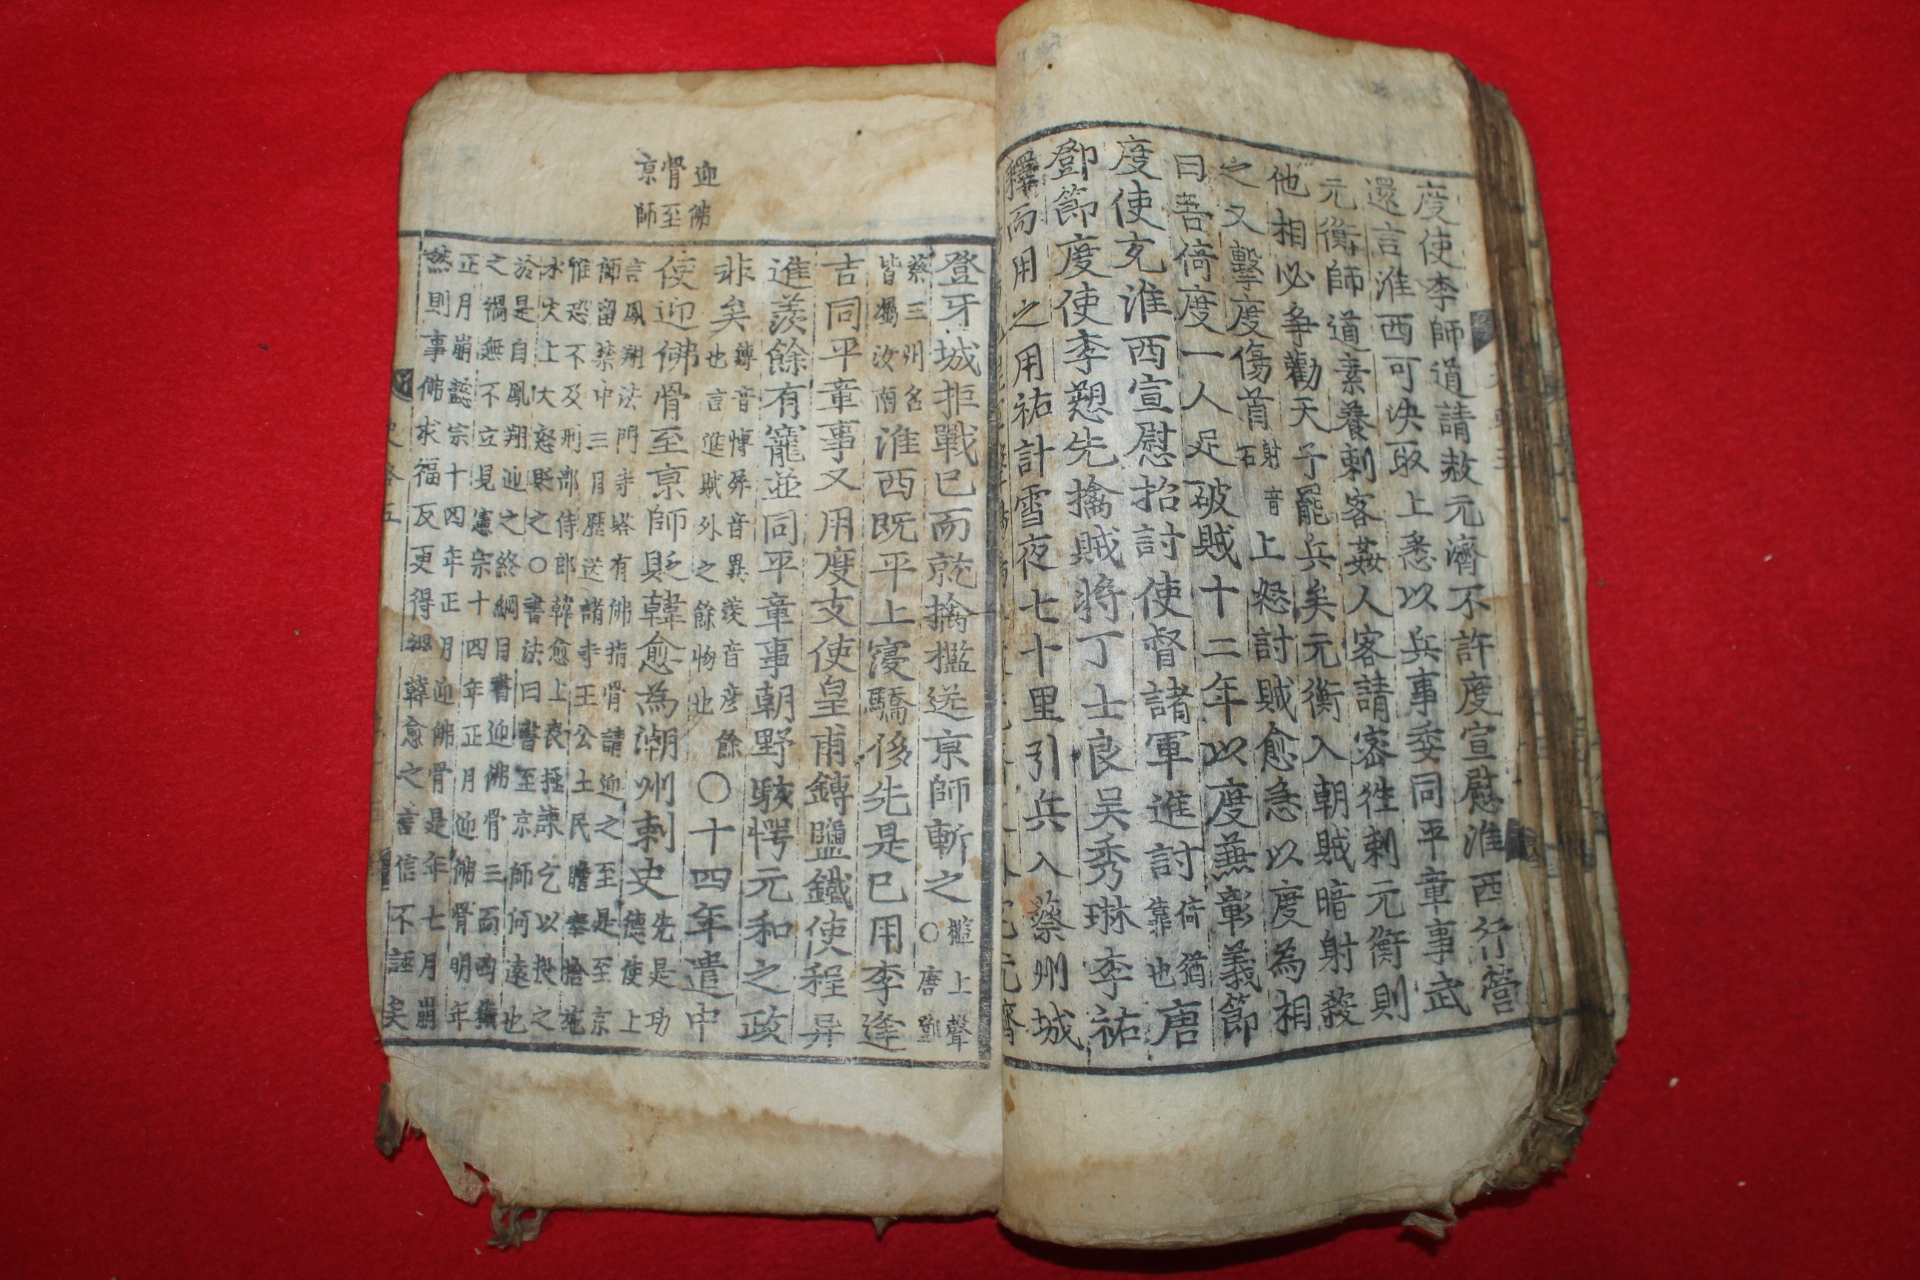 度使李師道請赦元濟不許度宣慰淮西行營
還言淮西可決取上悉以兵事委同平章事武
元衡師道素養刺客姦人客請密徃刺元衡則
他相必争勸天子罷兵矣元衡入朝賊暗射殺
之又擊度傷首射音石上怒討賊愈急以度為相
曰吾倚度一人足破賊十二年以度蕪彰義節
度使充淮西宣慰招討使督諸軍進討倚猶靠也唐
鄧節度使李愬先擒賊將丁士良吴秀琳李祐
釋而用之用祐計雪夜七十里引兵入蔡州城
登牙城拒戰已而就擒檻送京師斬之檻上聲○唐鄧
蔡三州名皆屬汝南淮西既平上寖驕侈先是已用李逢
吉同平章事又用度支使皇甫鎛鹽鐵使程异
進羨餘有寵並同平章事朝野駭愕元和之政
非矣鎛音愽异音異羨音彦餘也言進賦外之餘物也○十四年遣中
使迎佛骨至京師貶韓愈為潮州刺史先是功德使上
言鳳翔法門寺塔有佛指骨請迎之至是至京
師留禁中三月歷送諸寺王公士民瞻奉捨施
惟恐不及刑部侍郎韓愈上表極諫乞以投之
水火上大怒貶之○書法曰書至京師何遠也
於是自鳳翔迎之終綱目書迎佛骨三而两
之禍無不立見憲宗十四年正月迎佛骨明年
正月崩懿宗十四年正月迎佛骨是年七月崩
然則事佛求福反更得禍韓愈之言信不誣矣
迎佛
骨至
京師
史畧五